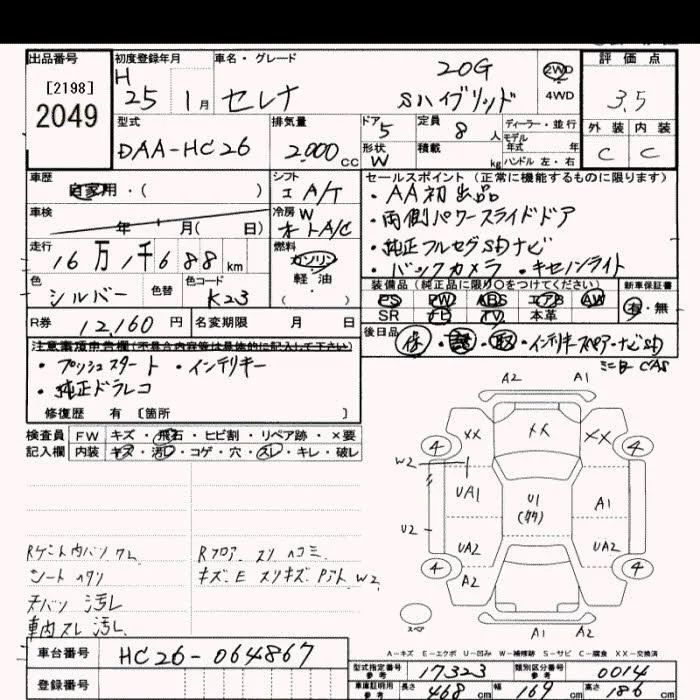 出品番号 初度登録年月 車名・グレード 評価点
[2198] H 20G 2WD
2049 25 1月 セレナ Sハイブリッド 4WD 3.5
型式 排気量 ドア 5 定員 8人 ディーラー・並行 外装 内装
DAA-HC26 2,000cc 形状 W 積載 kg モデル年式 年 ハンドル 左・右 C C
車歴 自家用・( ) シフト エ A/T セールスポイント(正常に機能するものに限ります)
・AA初出品
車検 年 月( 日) 冷房 W オートA/C ・両側パワースライドドア
走行 16万1千688km 燃料 ガソリン ・純正フルセグSDナビ
軽油・( ) ・バックカメラ ・キセノンライト
色 シルバー 色替 色コード K23 装備品(純正品に限り○をつけてください) 新車保証書
PS PW ABS エアB AW 有・無
SR TV 本革
R券 12,160円 名変期限 月 日 後日品 保・取・インテリキースペアー・ナビSD
注意事項申告欄(不具合内容等は具体的に記入して下さい)
・プッシュスタート ・インテリキー
・純正ドラレコ
修復歴 有 [箇所 ]
検査員 FW キズ・飛石・ヒビ割・リペア跡・×要
記入欄 内装 キズ・汚レ・コゲ・穴・スレ・キレ・破レ
A2 A1
XX XX XX
4 4
W2
UA1 U1 A1
U2
UA2 UA2
4 4
A2
A1 A2
スペア
シートヘタリ
天バリ 汚レ
車内スレ汚レ
Rフロアースリヘコミ
A-キズ E-エクボ U-凹み W-補修跡 S-サビ C-腐食 XX-交換済
車台番号 HC26-064867
登録番号
型式指定番号 参考 17323 類別区分番号 参考 0014
車庫証明用 参考 長さ 468cm 幅 169cm 高さ 186cm